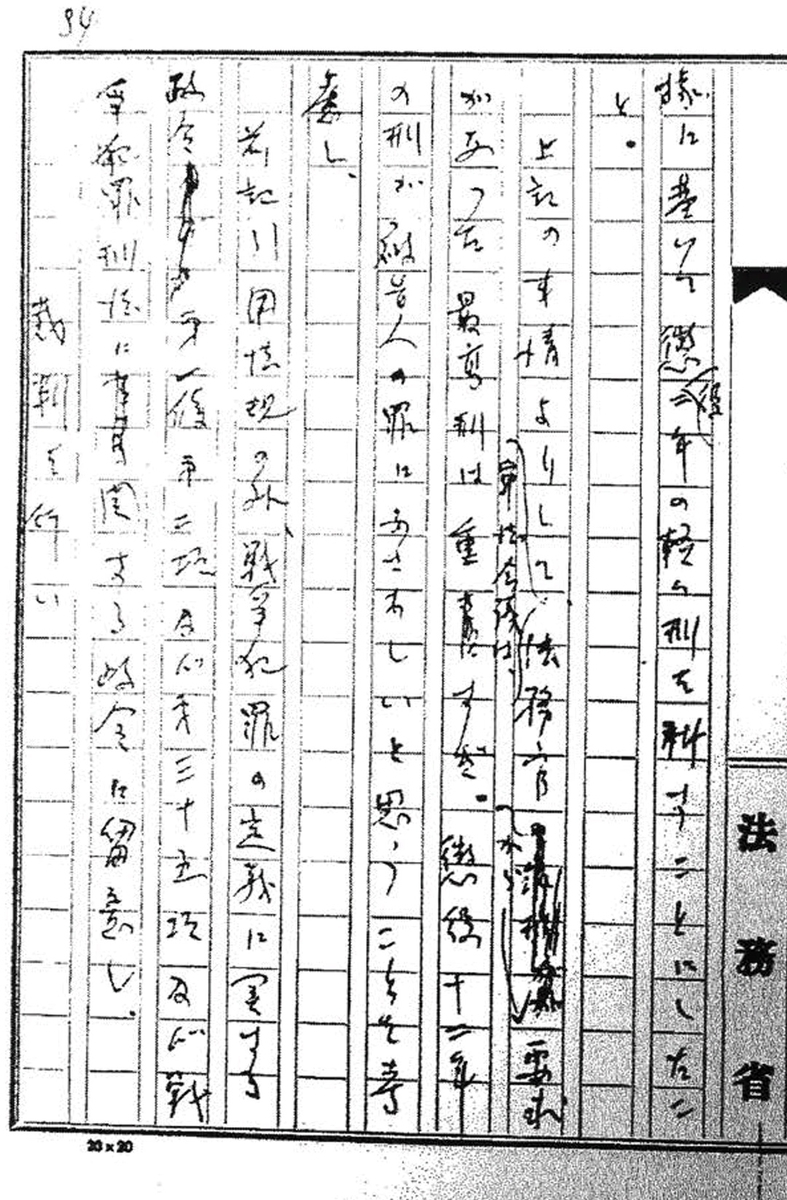 94
據に基いて懲役二年の軽い刑を科すことにしたこ
と。
上記の事情よりして、軍法会議は、法務官から要求
があった最高刑は重きにすぎ。懲役十二年
の刑が被告人の罪にふさわしいと思うことを考
慮し、
前記引用法規の外、戦争犯罪の定義に関する
政令第一條第二項及び第三十五項及び戦
争犯罪刑法に関する政令に留意し、
裁判を行い
法務省
20×20